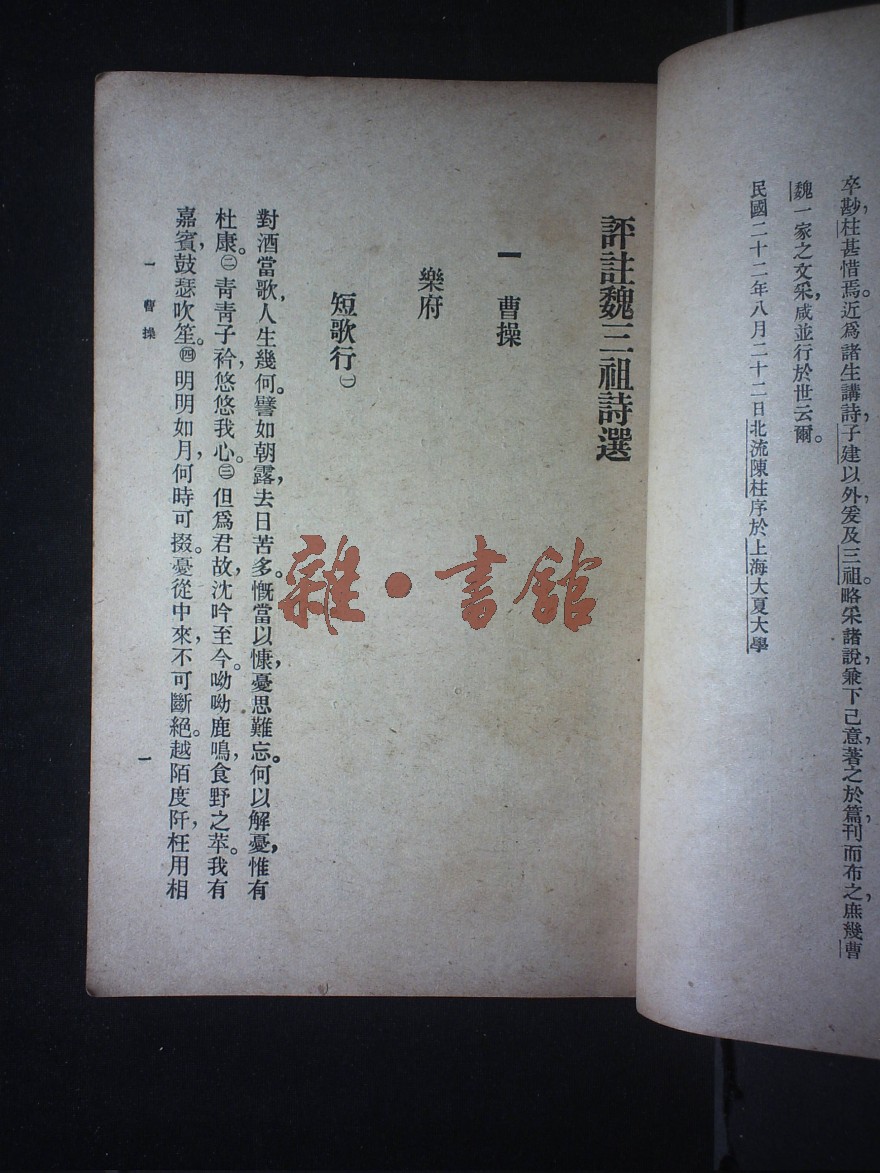 卒尠，柱甚惜焉。近爲諸生講詩，子建以外，爰及三祖。略采諸說，兼下己意，著之於篇，刊而布之，庶幾曹
魏一家之文采，咸並行於世云爾。
民國二十二年八月二十二日北流陳柱序於上海大夏大學
評註魏三祖詩選
一 曹操
樂府
短歌行㊀
對酒當歌，人生幾何。譬如朝露，去日苦多。慨當以慷，憂思難忘。何以解憂，惟有
杜康。㊁靑靑子衿，悠悠我心。㊂但爲君故，沈吟至今。呦呦鹿鳴，食野之苹。我有
嘉賓，鼓瑟吹笙。㊃明明如月，何時可掇。憂從中來，不可斷絕。越陌度阡，枉用相
一 曹操
一
雜·書館